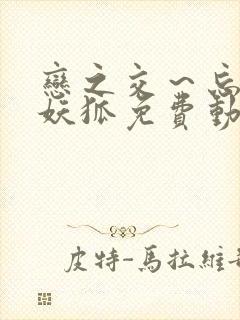 戀之交～忘
妖狐免費動
皮特-馬拉維